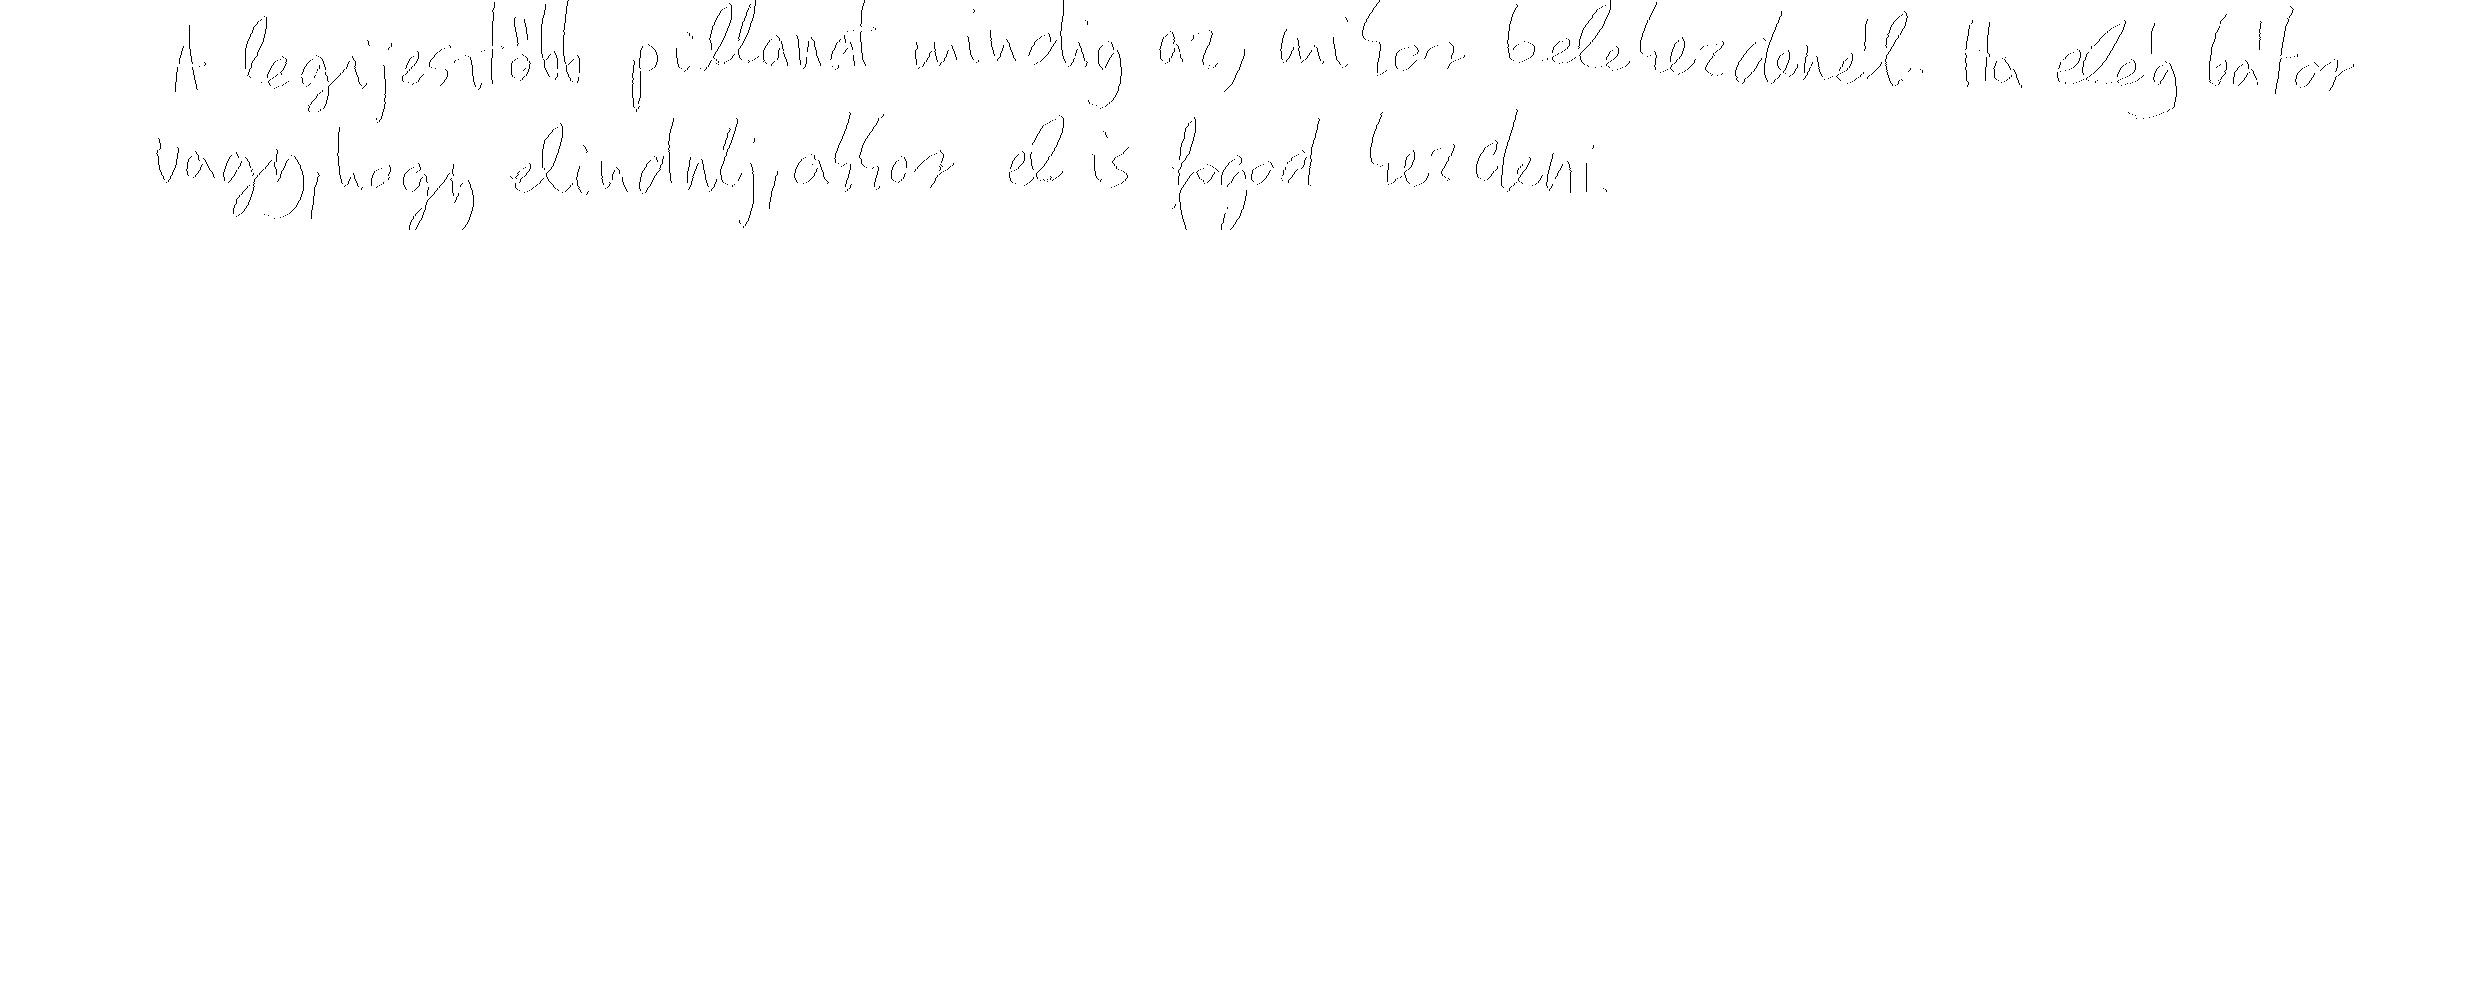 A legijesztőbb pillanat mindig az, mikor belekezdenél. Ha elég bátor
vagy, hogy elindulj, akkor el is fogod kezdeni.